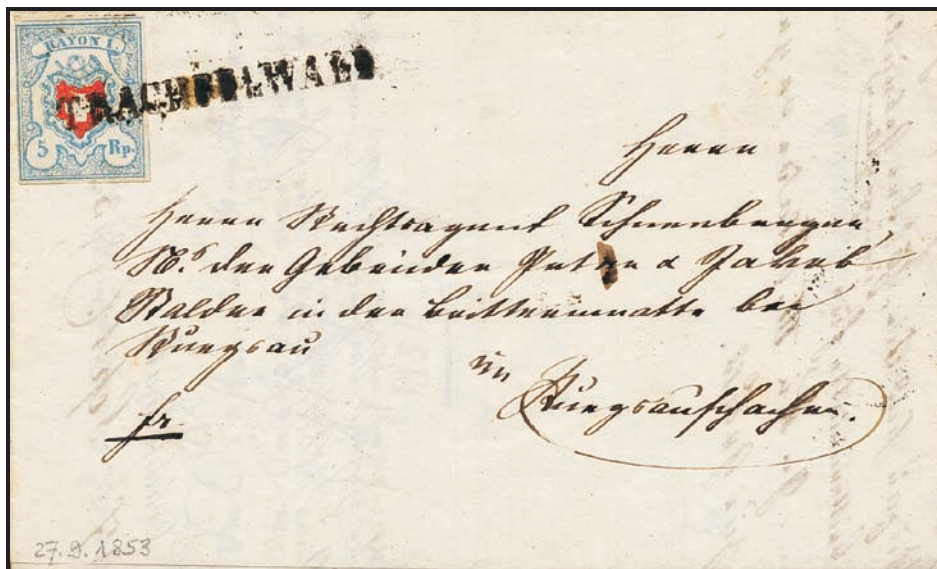 RAYON I.
TRACHSELWALD
5 Rp.
Herrn
Herrn Rechtsagent Schneeberger
Ns. der Gebrüder Peter & Jakob
Walder in der bei
Rüegsau
in Rüegsauschachen.
fr
27. 9. 1853